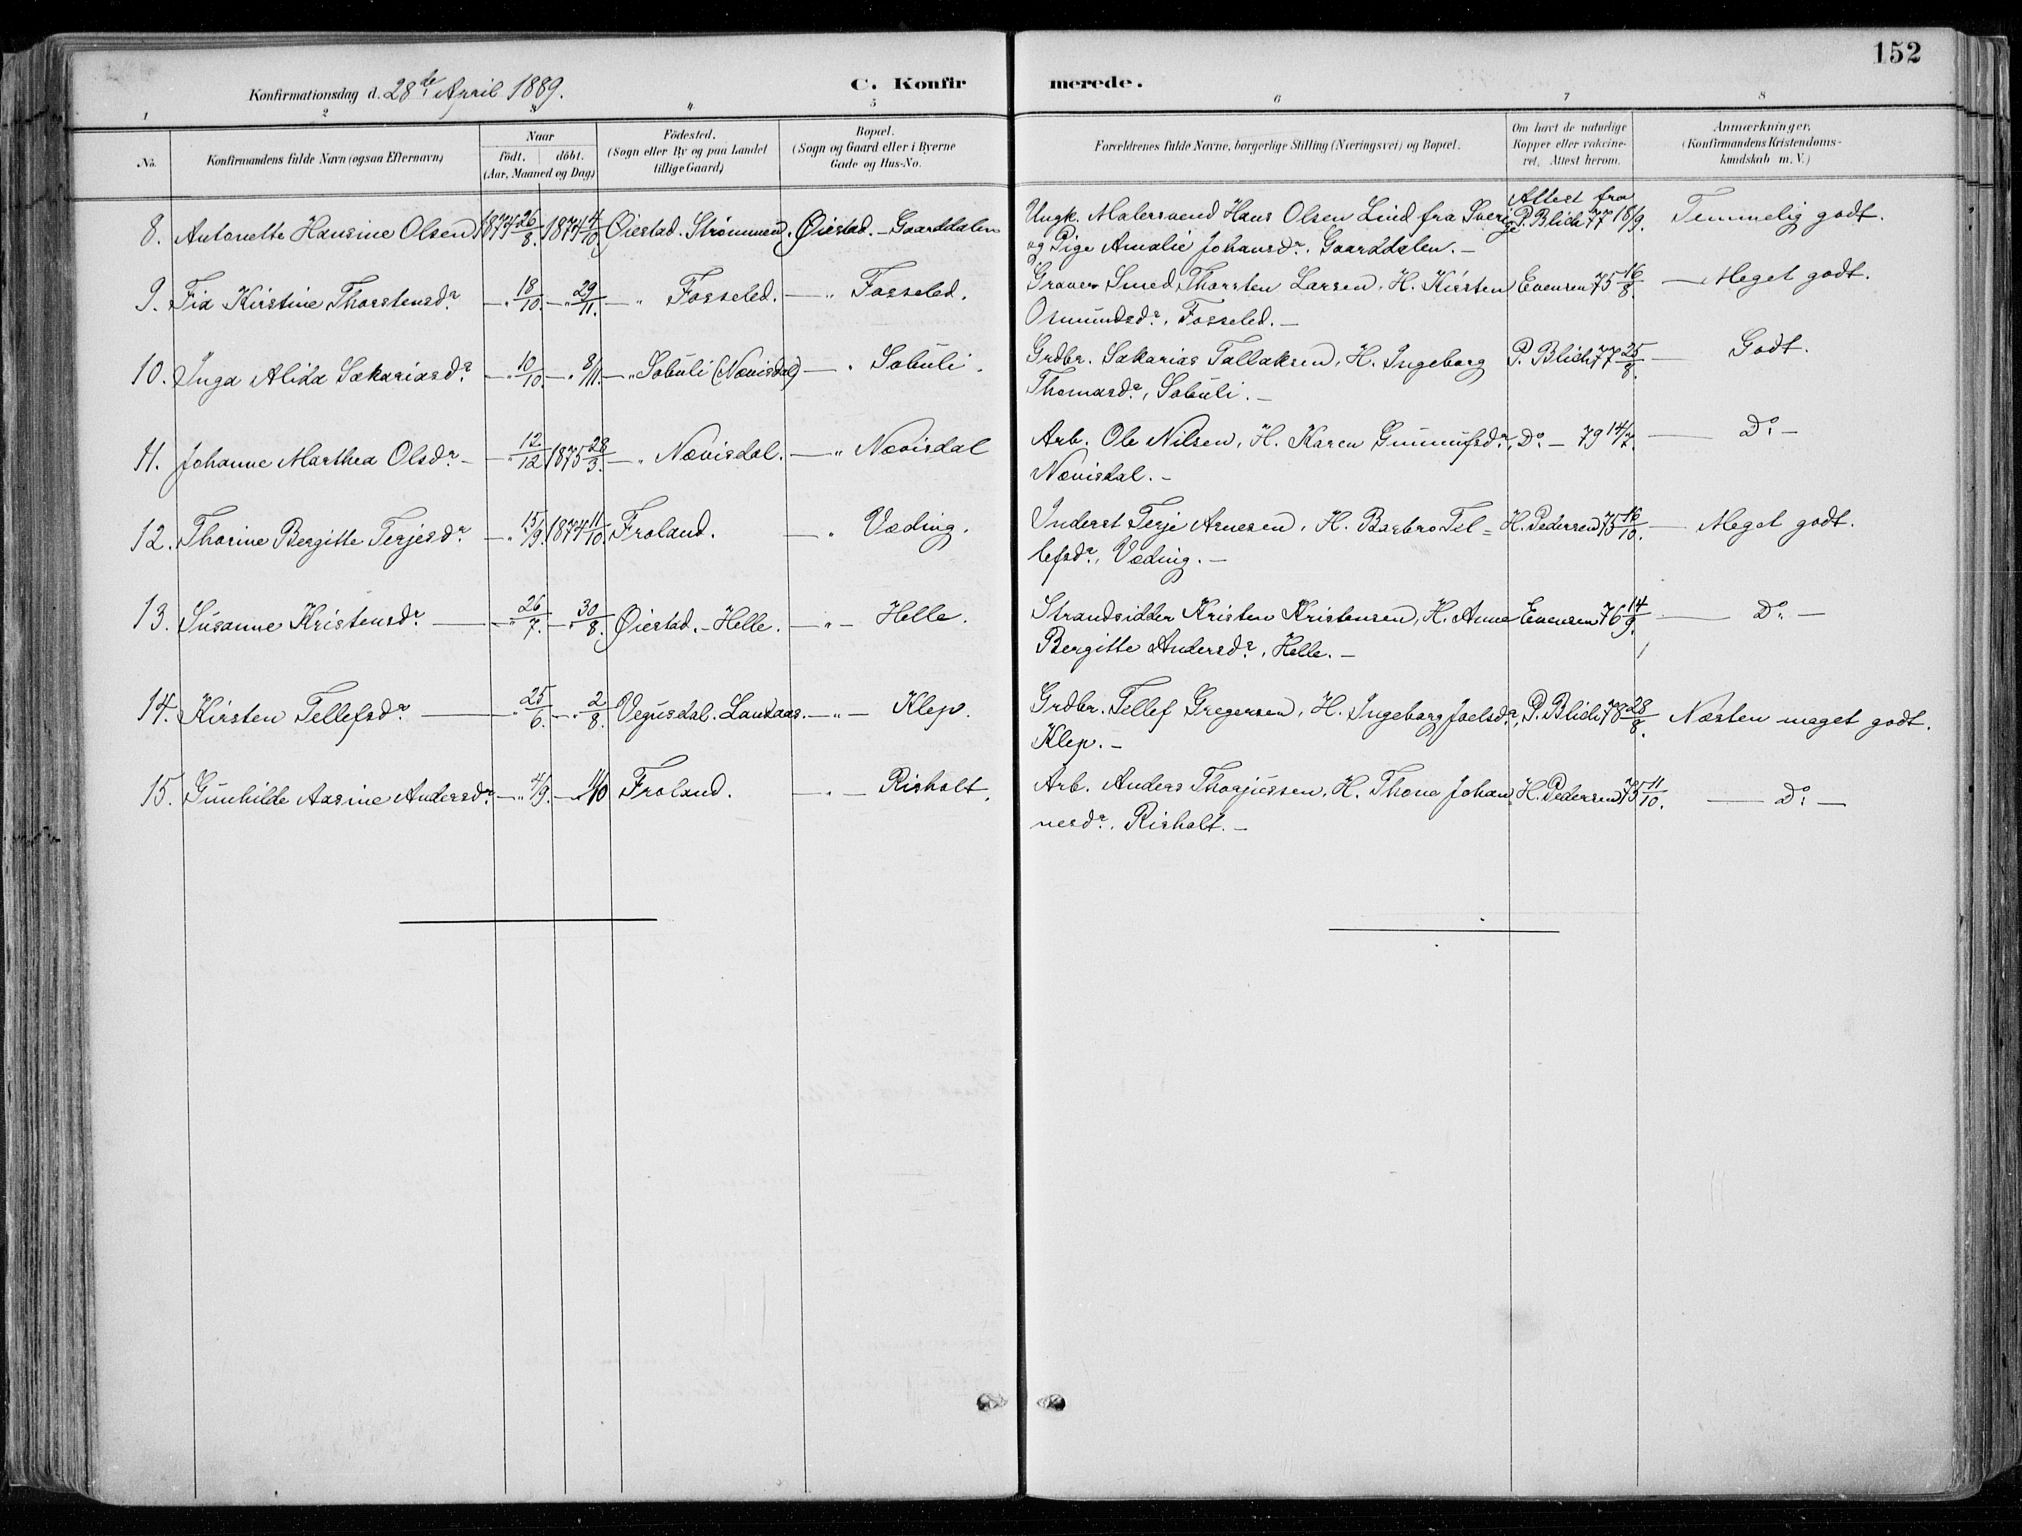 152
Konfirmationsdag d. 28de April 1889.
C. Konfirmerede.
1 2 3 4 5 6 7 8
No. Konfirmandens fulde Navn (ogsaa Efternavn) Naar födt. döbt. (Aar, Maaned og Dag) Födested. (Sogn eller By og paa Landet tillige Gaard) Bopæl. (Sogn og Gaard eller i Byerne Gade og Hus-No. Forældrenes fulde Navne, borgerlige Stilling (Næringsvei) og Bopæl. Om havt de naturlige Kopper eller vakcineret, Attest herom. Anmærkninger, (Konfirmandens Kristendomskundskab m. V.)
Attest fra
8. Antonette Hansine Olsen 1874 26/8. 1874 4/10 Øiestad. Strømmen. Øiestad. - Gaarddalen Ungk. Malersvend Hans Olsen Lind fra Sverige P. Blich 77 18/9. Temmelig godt.
og Pige Amalie Johansdr. Gaarddalen. -
9. Fia Kirstine Thorstensdr. - " 18/10. - " 29/11. - " Fosseled. - " Fosseled. Graver Smed Thorsten Larsen, H. Kirsten Evensen 75 16/8. - Meget godt.
Osmundsdr., Fosseled. -
10. Inga Alida Sakariasdr. - " 10/10 - " 8/11. - " Sobuli (Nævisdal) - " Sobuli. Grdbr. Sakarias Tallaksen, H. Ingeborg P. Blich 77 25/8. - Godt.
Thomasdr., Sobuli. -
11. Johanne Marthea Olsdr. - - " 12/12 1875 28/3. - " Nævisdal. - " Nævisdal Arb. Ole Nilsen, H. Karen Gunnufsdr., Do. - 79 14/7. - Do. -
Nævisdal. -
12. Thorine Bergitte Terjesdr. - " 15/9. 1874 11/10. Froland. - " Væding. Inderst Terje Arnesen, H. Barbro Tel= H. Pedersen 75 16/10. - Meget godt.
lefsdr., Væding. -
13. Susanne Kristensdr. - - " 26/7. - " 30/8. Øiestad. - Helle. - " - Helle. Strandsidder Kristen Kristensen, H. Anne Evensen 76 14/9. - Do. -
Bergitte Andersdr., Helle. -
14. Kirsten Tellefsdr. - - " 25/6. - " 2/8. Vegusdal. Landaas. - " - Klep. Grdbr. Tellef Gregersen, H. Ingeborg Joelsdr., P. Blich 78 28/8. Næsten meget godt.
Klep. -
15. Gunhilde Aasine Andersdr. - " 4/9. - " 4/10 Froland. - " - Risholt. Arb. Anders Thorjussen, H. Thone Johan= H. Pedersen 75 11/10. - Do. -
nesdr., Risholt. -